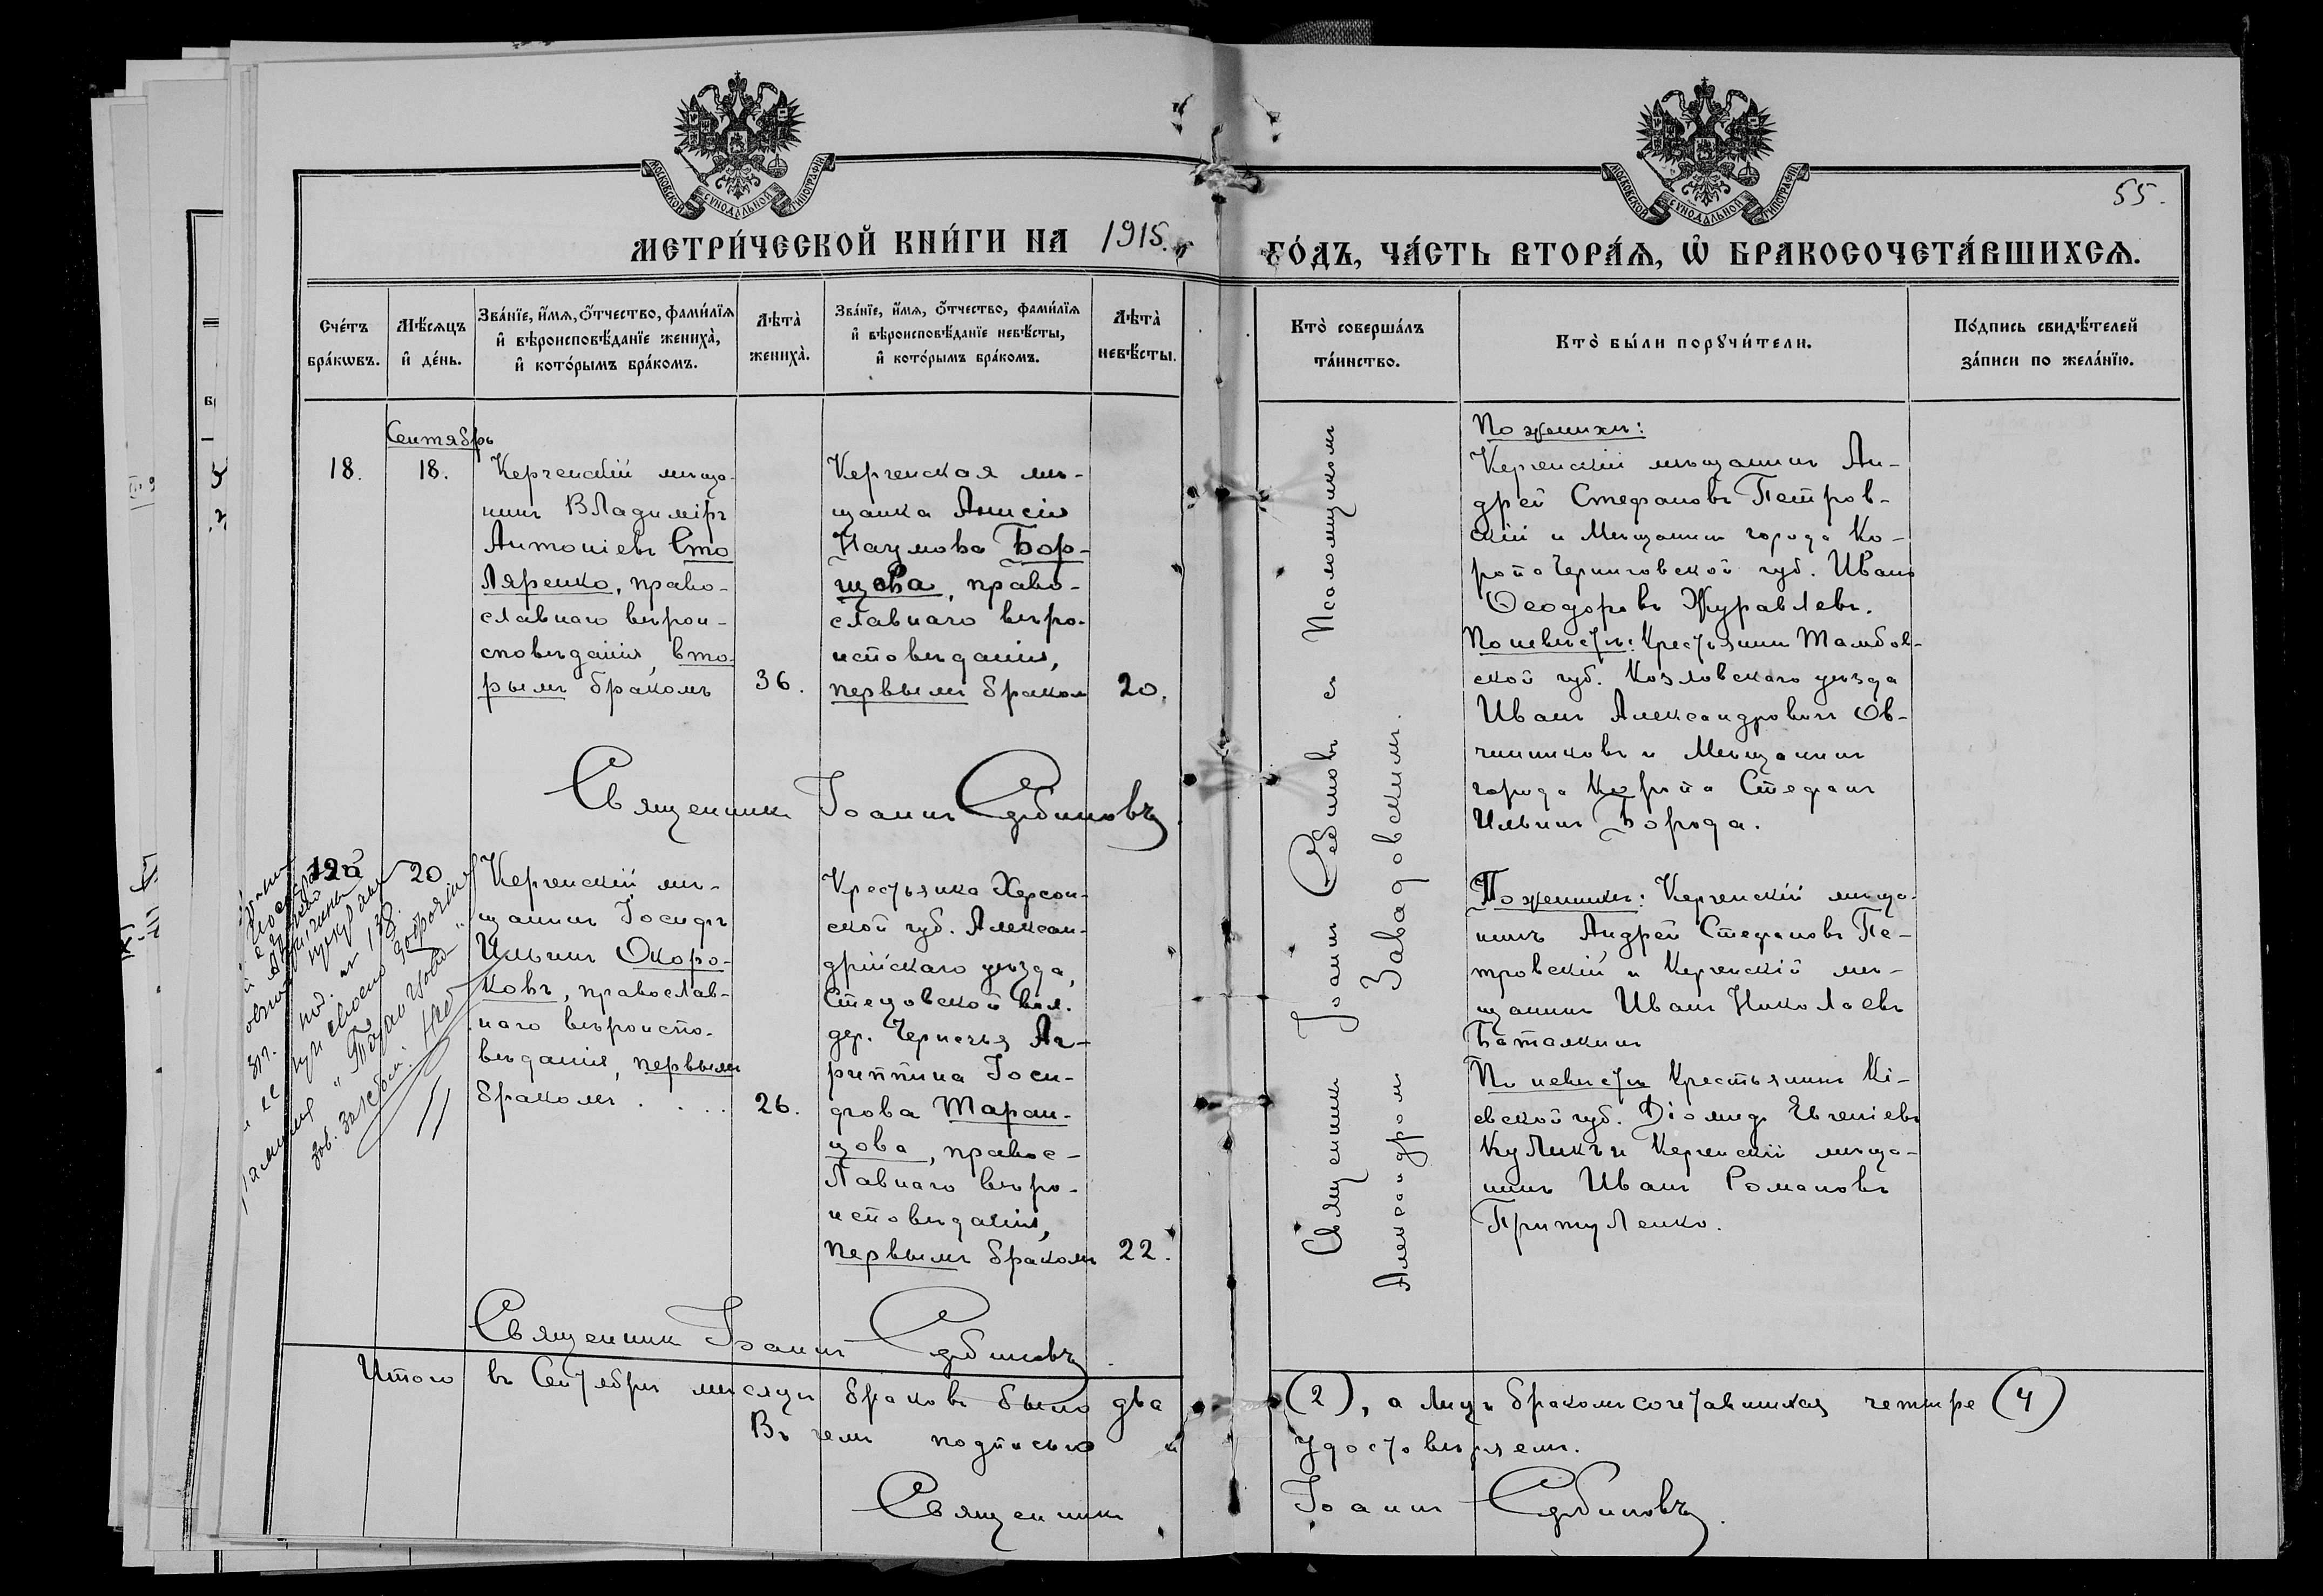 МОСКОВСКОЙ СѴНОДАЛЬНОЙ ТИПОГРАФІИ
МОСКОВСКОЙ СѴНОДАЛЬНОЙ ТИПОГРАФІИ
55.
МЕТРИ́ЧЕСКОЙ КНИ́ГИ НА 1915.
ГО́ДЪ, ЧА́СТЬ ВТОРА́Ѧ, Ѽ БРАКОСОЧЕТА́ВШИХСѦ.
Сче́тъ
бра́кѡвъ.
Мѣ́сѧцъ
и҆ де́нь.
Зва́нїе, и҆́мѧ, ѻ҆́тчество, фами́лїѧ
и҆ вѣроисповѣ́данїе жениха̀,
и҆ кото́рымъ бра́комъ.
Лѣта̀
жениха̀.
Зва́нїе, и҆́мѧ, ѻ҆́тчество, фами́лїѧ
и҆ вѣроисповѣ́данїе невѣ́сты,
и҆ кото́рымъ бра́комъ.
Лѣта̀
невѣ́сты.
Кто̀ соверша́лъ
та́инство.
Кто̀ бы́ли порꙋчи́тели.
По́дпись свидѣ́телей
за́писи по жела́нїю.
Сентябрь
18.
18.
Керченскій мѣща-
нинъ Владиміръ
Антоніевъ Сто
ляренко, право-
славнаго вѣрои-
сповѣданія, вто-
рымъ бракомъ
36.
Керченская мѣ-
щанка Анисія
Наумова Бор-
щова, право-
славнаго вѣро-
исповѣданія,
первымъ бракомъ
20.
Священникъ Іоаннъ Сербиновъ
Священникъ Іоаннъ Сербиновъ съ Псаломщикомъ
Александромъ Завадовскимъ.
По женихѣ:
Керченскій мѣщанинъ Ан-
дрей Стефановъ Петров-
скій и Мѣщанинъ города Ко-
ропа Черниговской губ. Иванъ
Ѳеодоровъ Журавлевъ.
По невѣстѣ: Крестьянинъ Тамбов-
ской губ. Козловскаго уѣзда
Иванъ Александровичъ Ов-
чинниковъ и Мѣщанинъ
города Коропа Стефанъ
Ильинъ Борода.
20
Керченскій мѣ-
щанинъ Іосифъ
Ильинъ Окоро-
ковъ, православ-
наго вѣроиспо-
вѣданія, первымъ
бракомъ . . . .
26.
Крестьянка Херсон-
ской губ. Алексан-
дрійскаго уѣзда,
Стецовской вол.
дер. Чернечья Аг-
риппина Іоси-
фова Таран-
цова, правос-
лавнаго вѣро-
исповѣданія,
первымъ бракомъ
22.
По женихѣ: Керченскій мѣща-
нинъ Андрей Стефановъ Пе-
тровскій и Керченскій мѣ-
щанинъ Иванъ Николаевъ
Баталкинъ
По невѣстѣ Крестьянинъ Кі-
евской губ. Діомидъ Евгеніевъ
Куликъ и Керченскій мѣща-
нинъ Иванъ Романовъ
Притуленко.
Священникъ Іоаннъ Сербиновъ.
Итого въ Сентябрѣ мѣсяцѣ браковъ было два (2), а лицъ бракомъ сочетавшихся четыре (4)
Въ чемъ подписью и удостовѣряемъ.
Священникъ Іоаннъ Сербиновъ.